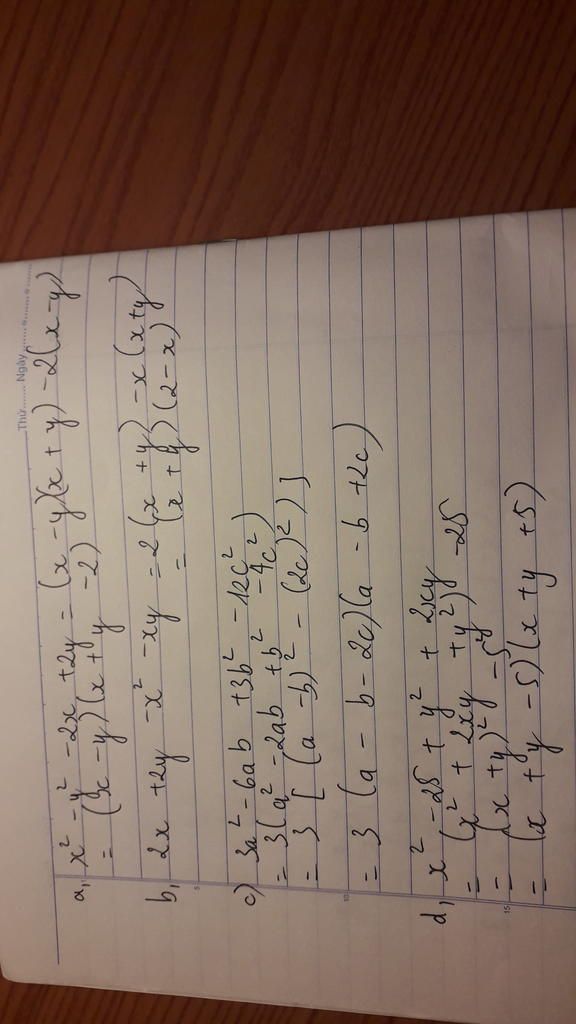 Thứ........ Ngày........
a, x² - y² - 2x + 2y = (x - y)(x + y) - 2(x - y)
= (x - y)(x + y - 2)
b, 2x + 2y - x² - xy = 2(x + y) - x(x + y)
= (x + y)(2 - x)
c) 3a² - 6ab + 3b² - 12c²
= 3(a² - 2ab + b² - 4c²)
= 3[(a - b)² - (2c)²)]
= 3(a - b - 2c)(a - b + 2c)
d, x² - 25 + y² + 2xy
= (x² + 2xy + y²) - 25
= (x + y)² - 5²
= (x + y - 5)(x + y + 5)
5
10
15